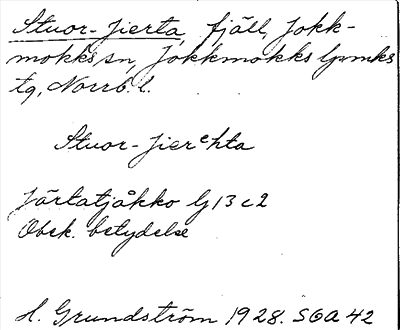 Stuor-Jierta, fjäll, Jokk-
mokks sn, Jokkmokks lpmks
tg, Norrb. l.
Stuor-Jierᵉhta
Järtatjåkko G 13 c 2
Obek. betydelse
H. Grundström 1928. SOA 42